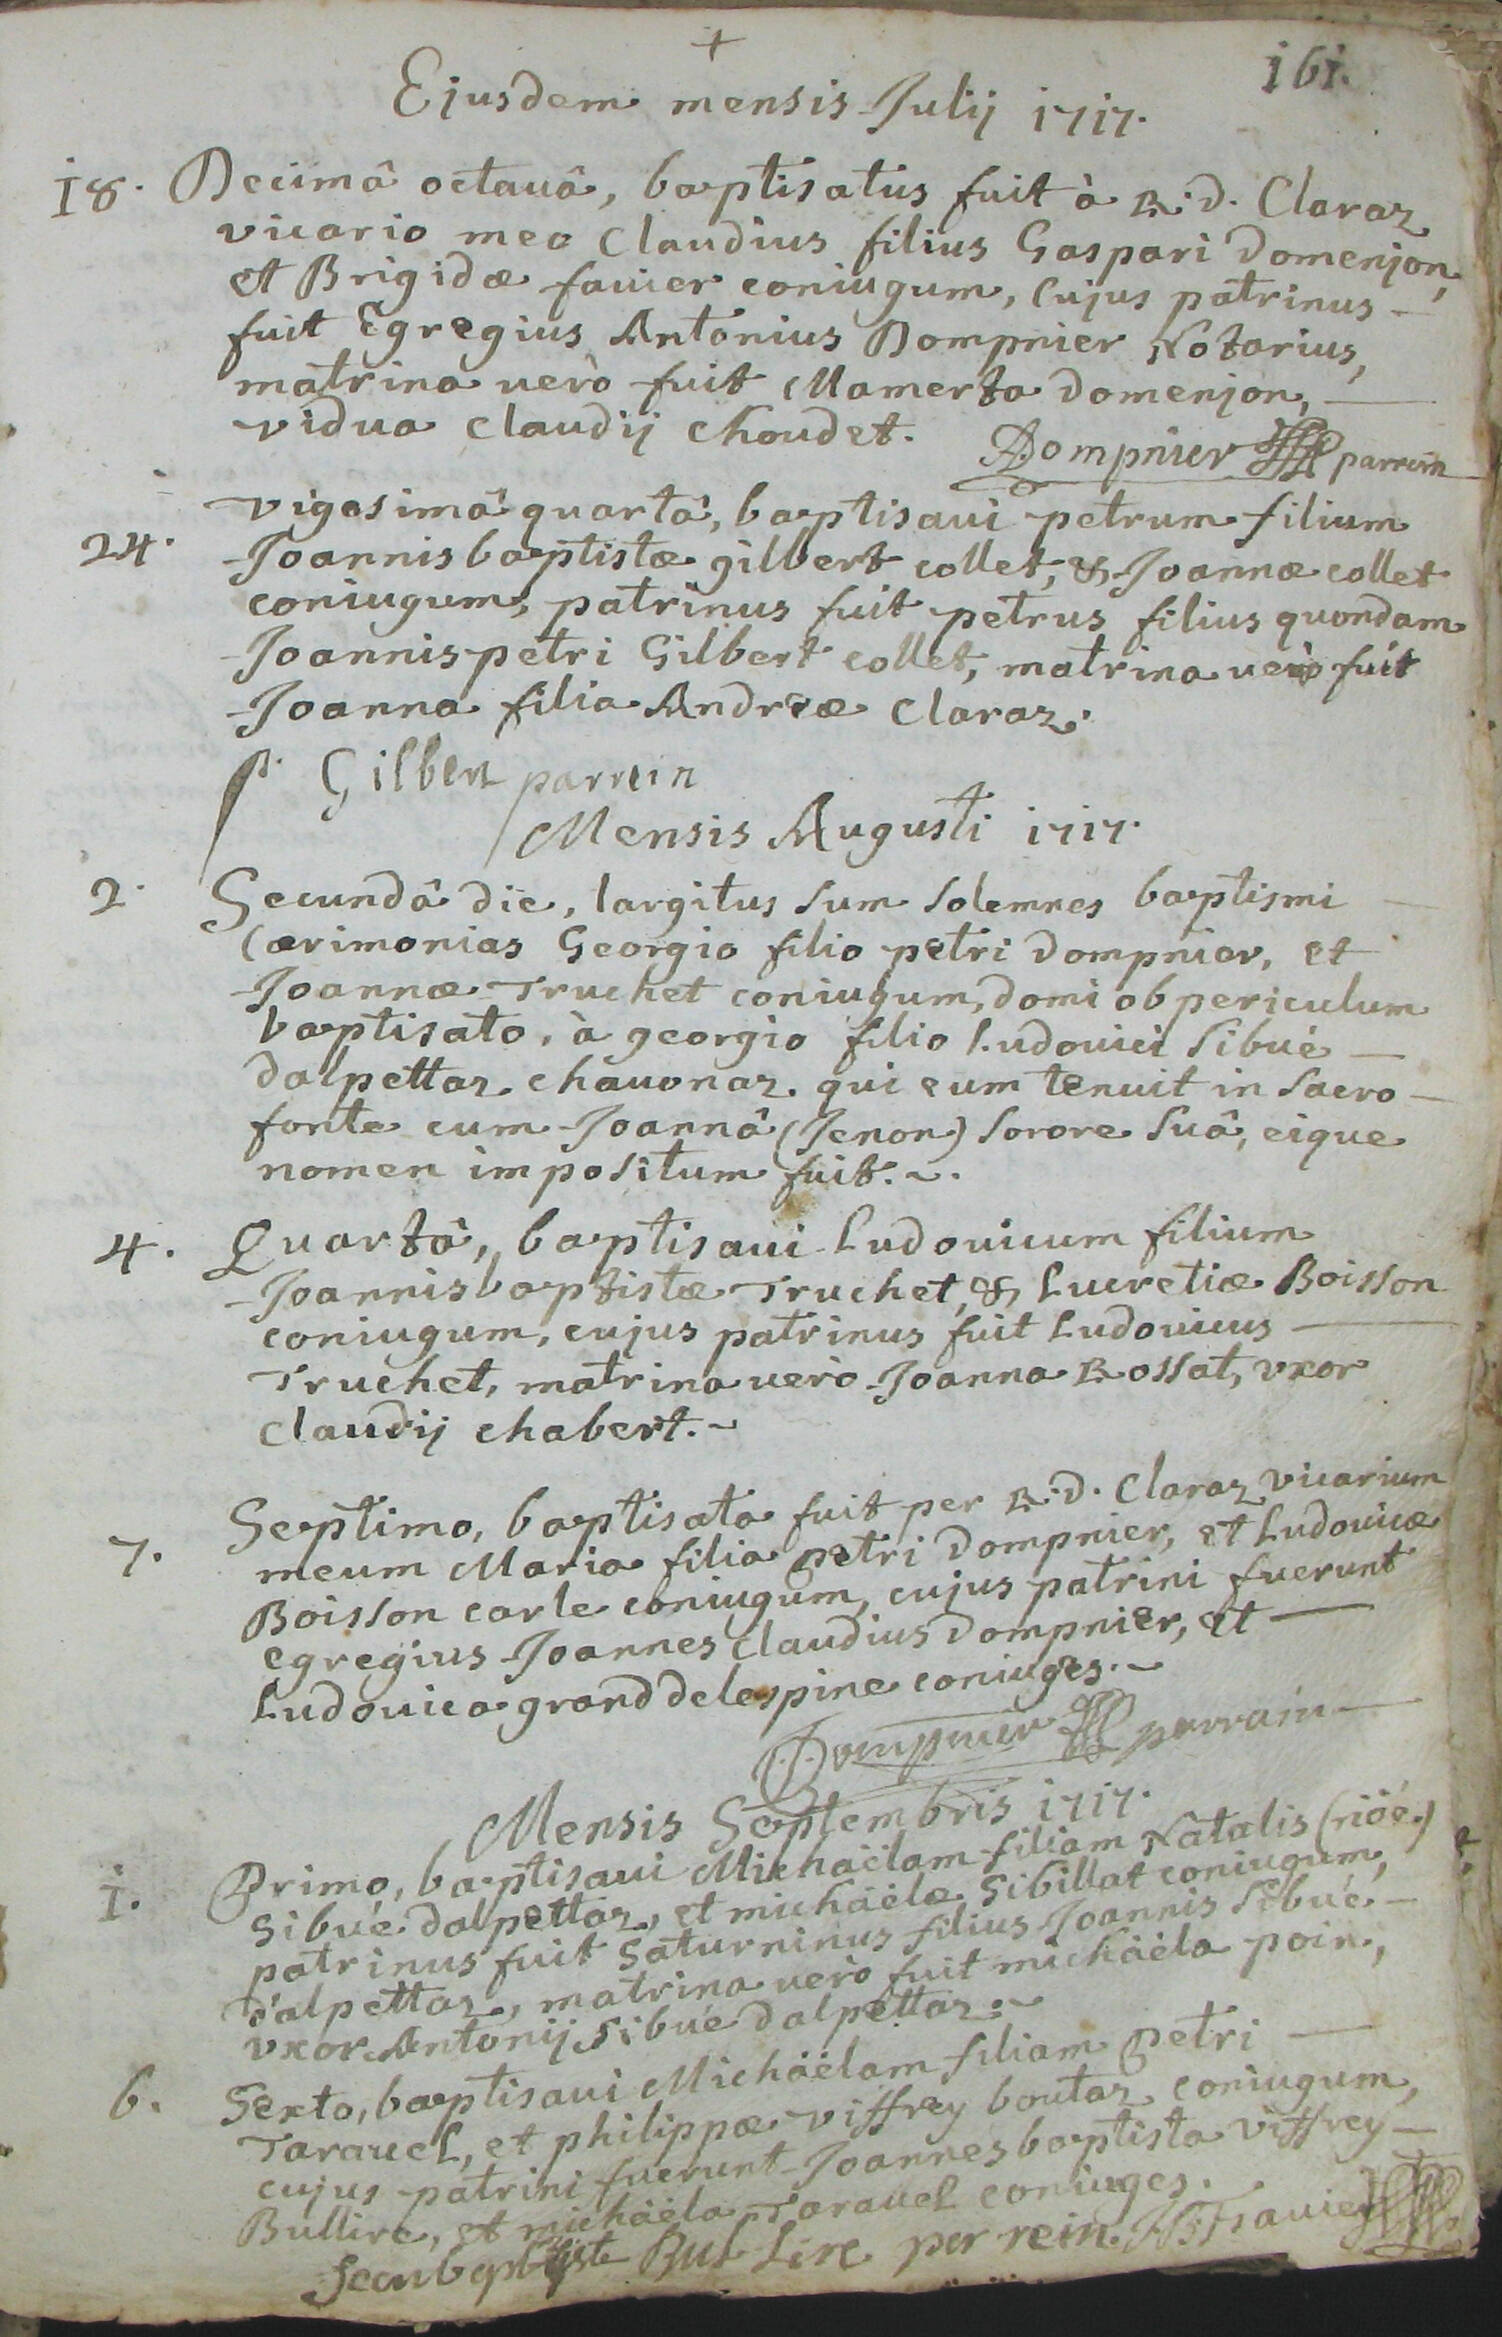 +
161.
Ejusdem mensis Julij 1717.
18. Decimâ octauâ, baptisatus fuit à R.D. Claraz
vicario meo Claudius filius Gaspari Domenjon,
et Brigidæ fauier coniugum, Cujus patrinus
fuit Egregius Antonius Dompnier Notarius,
matrina uerò fuit Mamerta Domenjon,
vidua Claudij Choudet. Dompnier parrein
24. vigesimâ quartâ, baptisaui petrum filium
Joannisbaptistæ gilbert collet, & Joannæ collet
coniugum, patrinus fuit petrus filius quondam
Joannispetri Gilbert collet, matrina uerò fuit
Joanna filia Andreæ Claraz.
p. Gilbert parrein
Mensis Augusti 1717.
2. Secundâ die, largitus sum solemnes baptismi
Cærimonias Georgio filio petri Dompnier, et
Joannæ Truchet coniugum, domi ob periculum
baptisato, à georgio filio Ludouici Sibué
dalpettaz chauonaz. qui eum tenuit in sacro
fonte cum Joannâ (Jenon) sorore suâ, eique
nomen impositum fuit.
4. Quartâ, baptisaui Ludouicum filium
Joannisbaptistæ Truchet, & Lucretiæ Boisson
coniugum, cujus patrinus fuit Ludouicus
Truchet, matrina uerò Joanna Rossat, vxor
Claudij chabert.
7. Septima, baptisata fuit per R.D. Claraz vicarium
meum Maria filia petri Dompnier, et Ludouicæ
Boisson carle coniugum, cujus patrini fuerunt
egregius Joannes Claudius Dompnier, et
Ludouica grand delespine coniuges.
Dompnier parrain
Mensis Septembris 1717.
1. Prima, baptisaui Michaëlam filiam Natalis (nöé.)
Sibué dalpettaz, et michaëlæ Sibillat coniugum,
patrinus fuit Saturninus filius Joannis Sibué
dalpettaz, matrina uerò fuit michaëla poin,
vxor Antonij Sibué dalpettaz.
6. Sexta, baptisaui Michaëlam filiam petri
Tarauel, et philippæ viffrey boutaz coniugum,
cujus patrini fuerunt Joannesbaptista viffrey
Bullire, et michaëla Tarauel coniuges.
Bul Lire per rein.